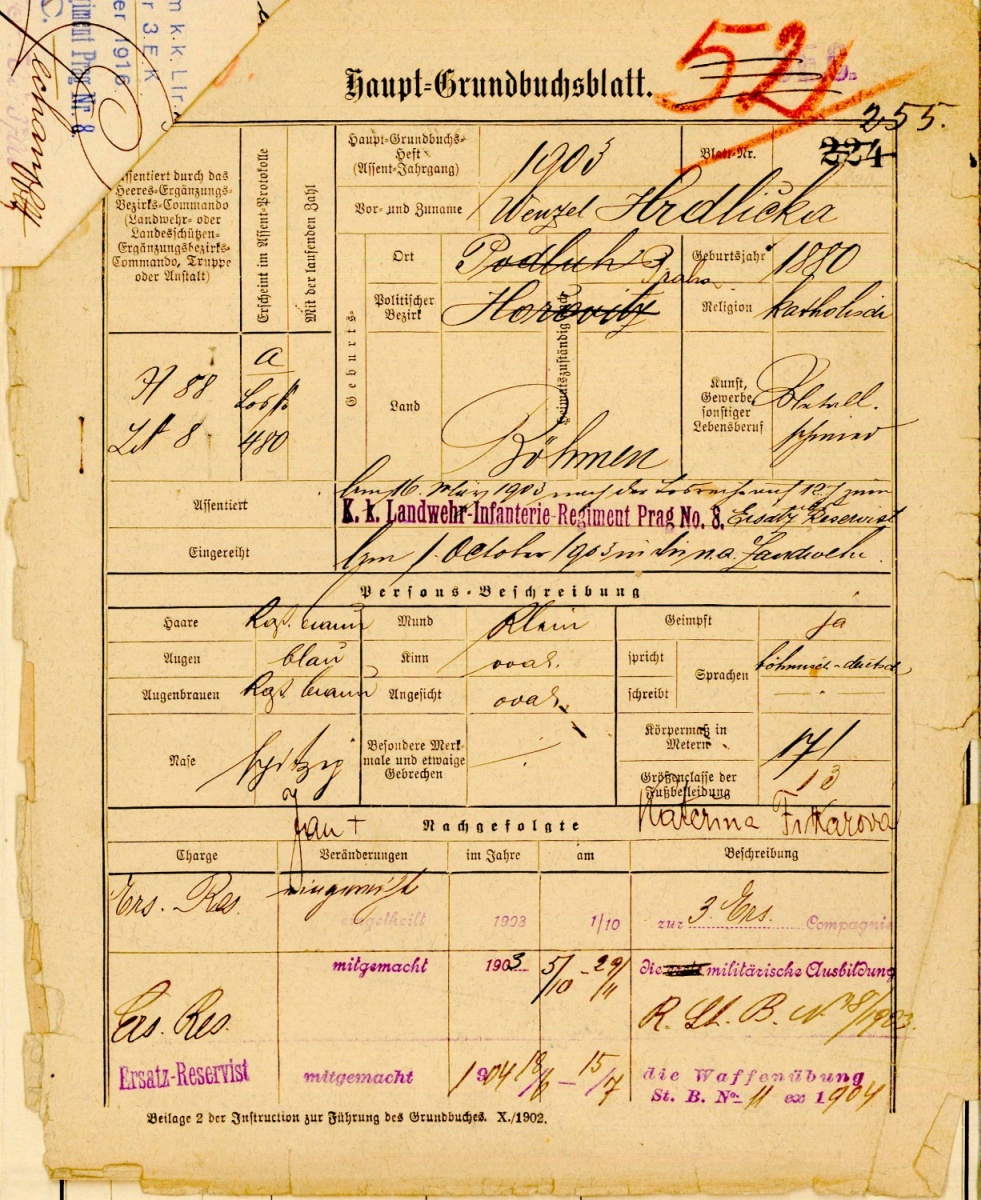 m k.k. Lir.
r 3. E K.
er 1916
giment Prag Nr. 8.
Haupt=Grundbuchsblatt.
52
255.
Blatt-Nr.
224
Assentiert durch das
Heeres-Ergänzungs-
Bezirks-Commando
(Landwehr- oder
Landesschützen-
Ergänzungsbezirks-
Commando, Truppe
oder Anstalt)
Erscheint im Assent-Protokolle
Mit der laufenden Zahl
Haupt-Grundbuchs-
Heft
(Assent-Jahrgang)
1903
Vor- und Zuname
Wenzel Hrdlička
Geburts-
Ort
Podluh
Praha
Geburtsjahr
1880
Politischer
Bezirk
Horovitz
Heimatszuständig
Religion
katholisch
a
H 88
Losr.
Lst 8
480
Land
Böhmen
Kunst,
Gewerbe,
sonstiger
Lebensberuf
Metall.
schmied
Assentiert
am 16. März 1903 nach der Losreihe auf 12 J zum
K. k. Landwehr-Infanterie-Regiment Prag No. 8.
Ersatz Reservist
Eingereiht
am 1. October 1903 in die n.a. Landwehr.
Persons-Beschreibung
Haare
Mund
Klein
Geimpft
ja
Augen
blau
Kinn
oval.
spricht
Sprachen
böhmisch-deutsch
Augenbrauen
Angesicht
oval.
schreibt
Nase
spitzig
Besondere Merk-
male und etwaige
Gebrechen
Körpermaß in
Metern
171
Größenclasse der
Fußbekleidung
13
Jan +
Nachgefolgte
Katerina Fikarova
Charge
Veränderungen
im Jahre
am
Beschreibung
Ers. Res.
eingereiht
eingetheilt
1903
1/10
zur 3. Ers. Compagnie
mitgemacht
1903
5/10 - 29/11
die militärische Ausbildung
Ers. Res.
R. St. B. N 48/1903.
Ersatz-Reservist
mitgemacht
1904
18/6 - 15/7
die Waffenübung
St. B. No. 11 ex 1904
Beilage 2 der Instruction zur Führung des Grundbuches. X./1902.